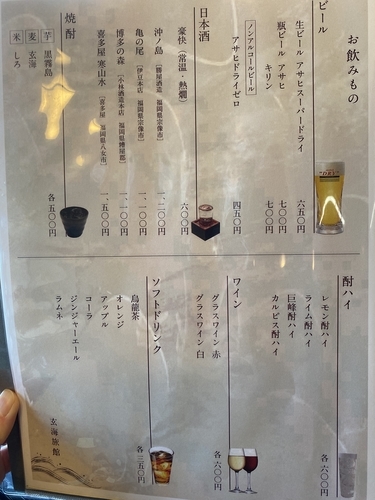 お飲みもの
ビール
生ビール アサヒスーパードライ 六五〇円
瓶ビール アサヒ 七〇〇円
キリン 七〇〇円
ノンアルコールビール
アサヒドライゼロ 四五〇円
日本酒
豪快(常温・熱燗) 六〇〇円
沖ノ島 [勝屋酒造 福岡県宗像市] 一、二〇〇円
亀の尾 [伊豆本店 福岡県宗像市] 一、一〇〇円
博多の森 [小林酒造本店 福岡県糟屋郡] 一、一〇〇円
喜多屋 寒山水 [喜多屋 福岡県八女市] 一、五〇〇円
焼酎
芋 黒霧島
麦 玄海
米 しろ
各 五〇〇円
酎ハイ
レモン酎ハイ
ライム酎ハイ
巨峰酎ハイ
カルピス酎ハイ
各 六〇〇円
ワイン
グラスワイン 赤
グラスワイン 白
各 六〇〇円
ソフトドリンク
烏龍茶
オレンジ
アップル
コーラ
ジンジャーエール
ラムネ
各 三五〇円
玄海旅館